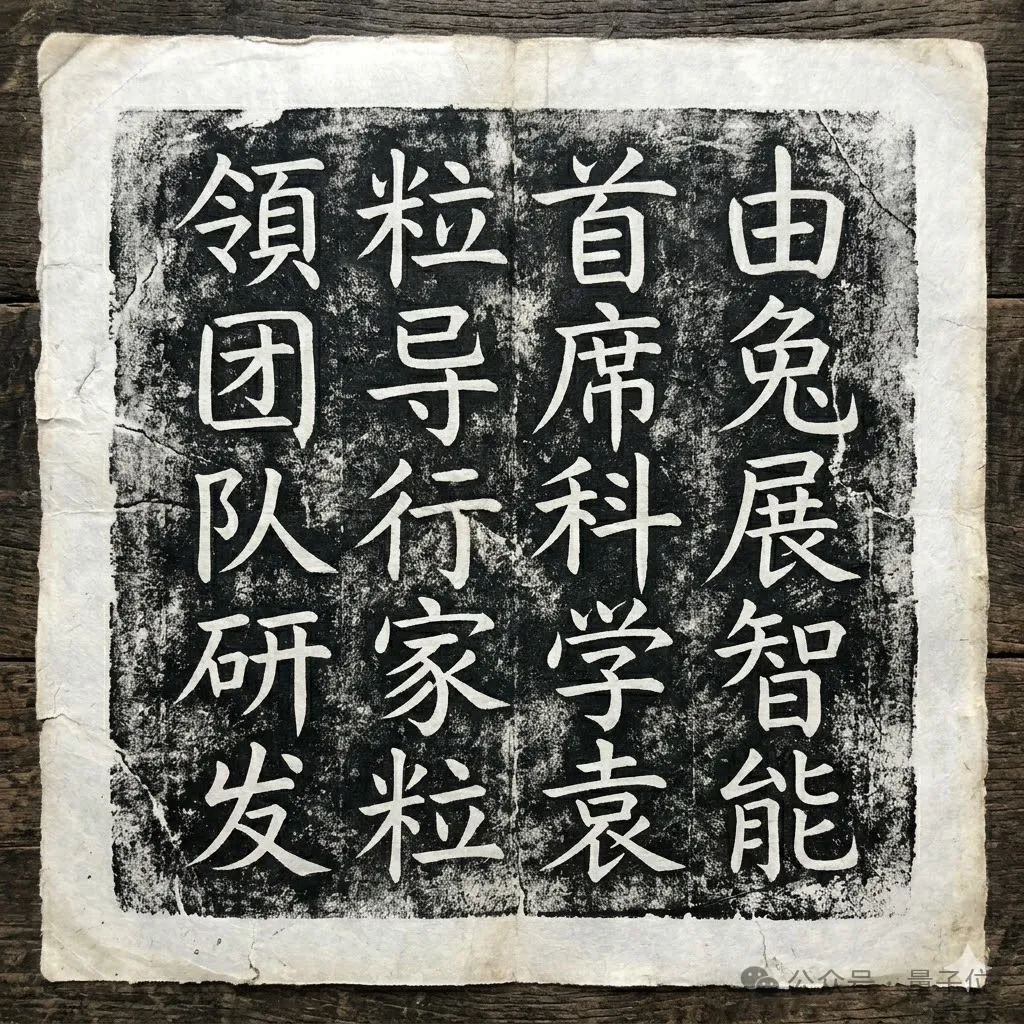 由兔展智能
首席科学袁
粒导行家粒
領团队研发
公众号 · 量子位